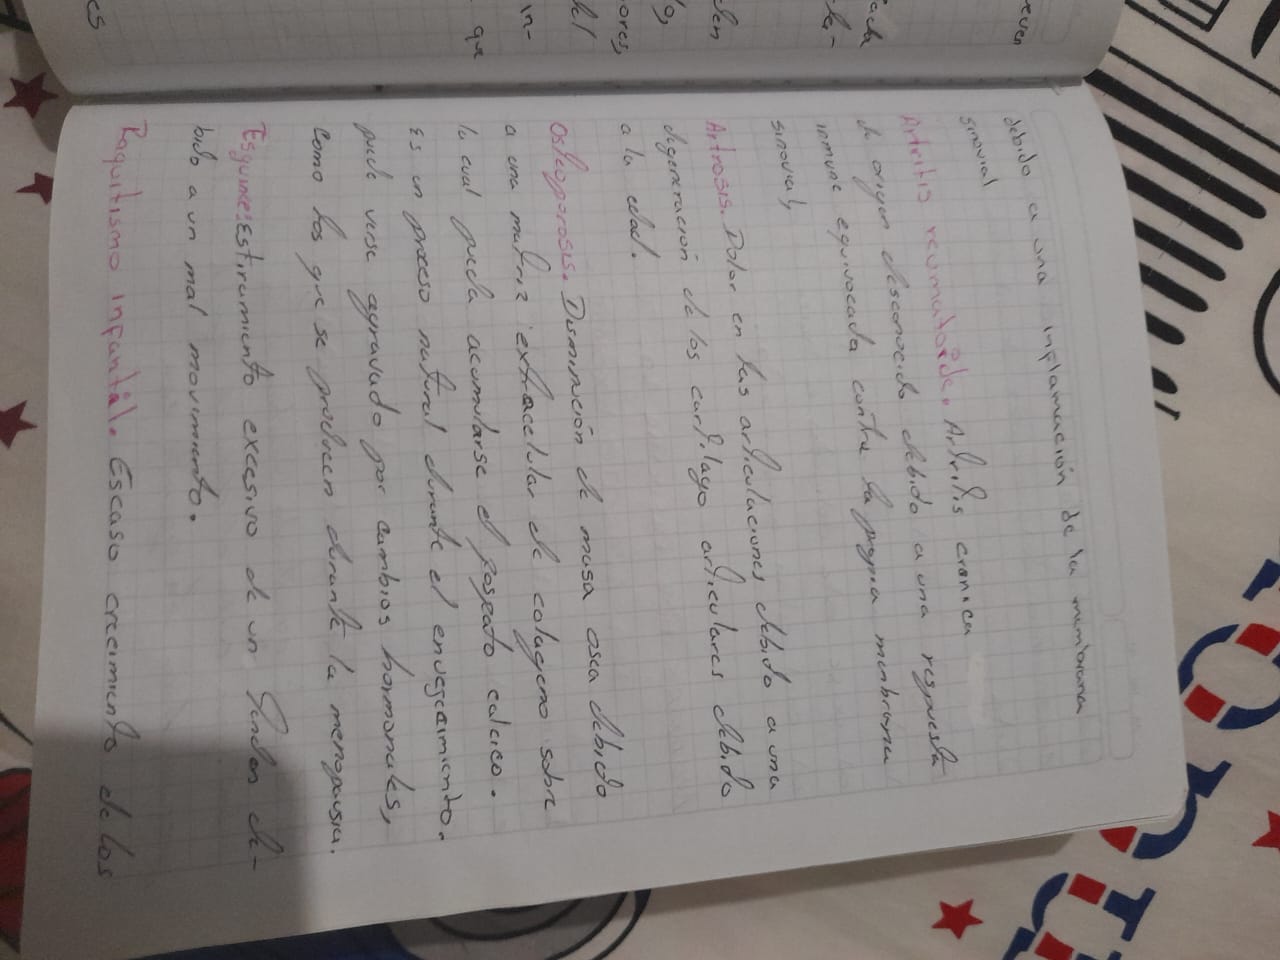 debido a una inflamación de la membrana
sinovial
Artritis reumatoide. Artritis cronica
de origen desconocido debido a una respuesta
inmune equivocada contra la propia membrana
sinovial,
Artrosis. Dolor en las articulaciones debido a una
degeneración de los cartilago articulares debido
a la edad.
Osteoporosis. Disminución de masa osea debido
a una matriz extracelular de colageno sobre
la cual pueda acumularse el fosfato calcico.
Es un proceso natural durante el envejecimiento.
puede verse agravado por cambios hormonales,
como los que se producen durante la menopausia.
Esguince: Estiramiento excesivo de un de-
bido a un mal movimiento.
Raquitismo infantil. Escaso crecimiento de los